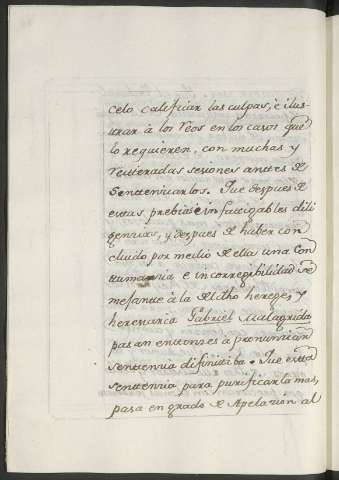 celo calificar las culpas, è ilus-
trar à los reos en los casos que
lo requieren, con muchas y
reiteradas sesiones anttes de
Senttenciarlos. Que despues de
estas prebias è infatigables dili
gencias, y despues de haber con
cluido por medio de ella una con
ttumacia e incorregibilidad se
mejantte à la de dho herege, y
heresiarca Gabriel Malagrida
pasan enttonces à pronunciar
senttencia difinittiba. Que estta
senttencia para purificarla mas,
pasa en grado de Apelacion al